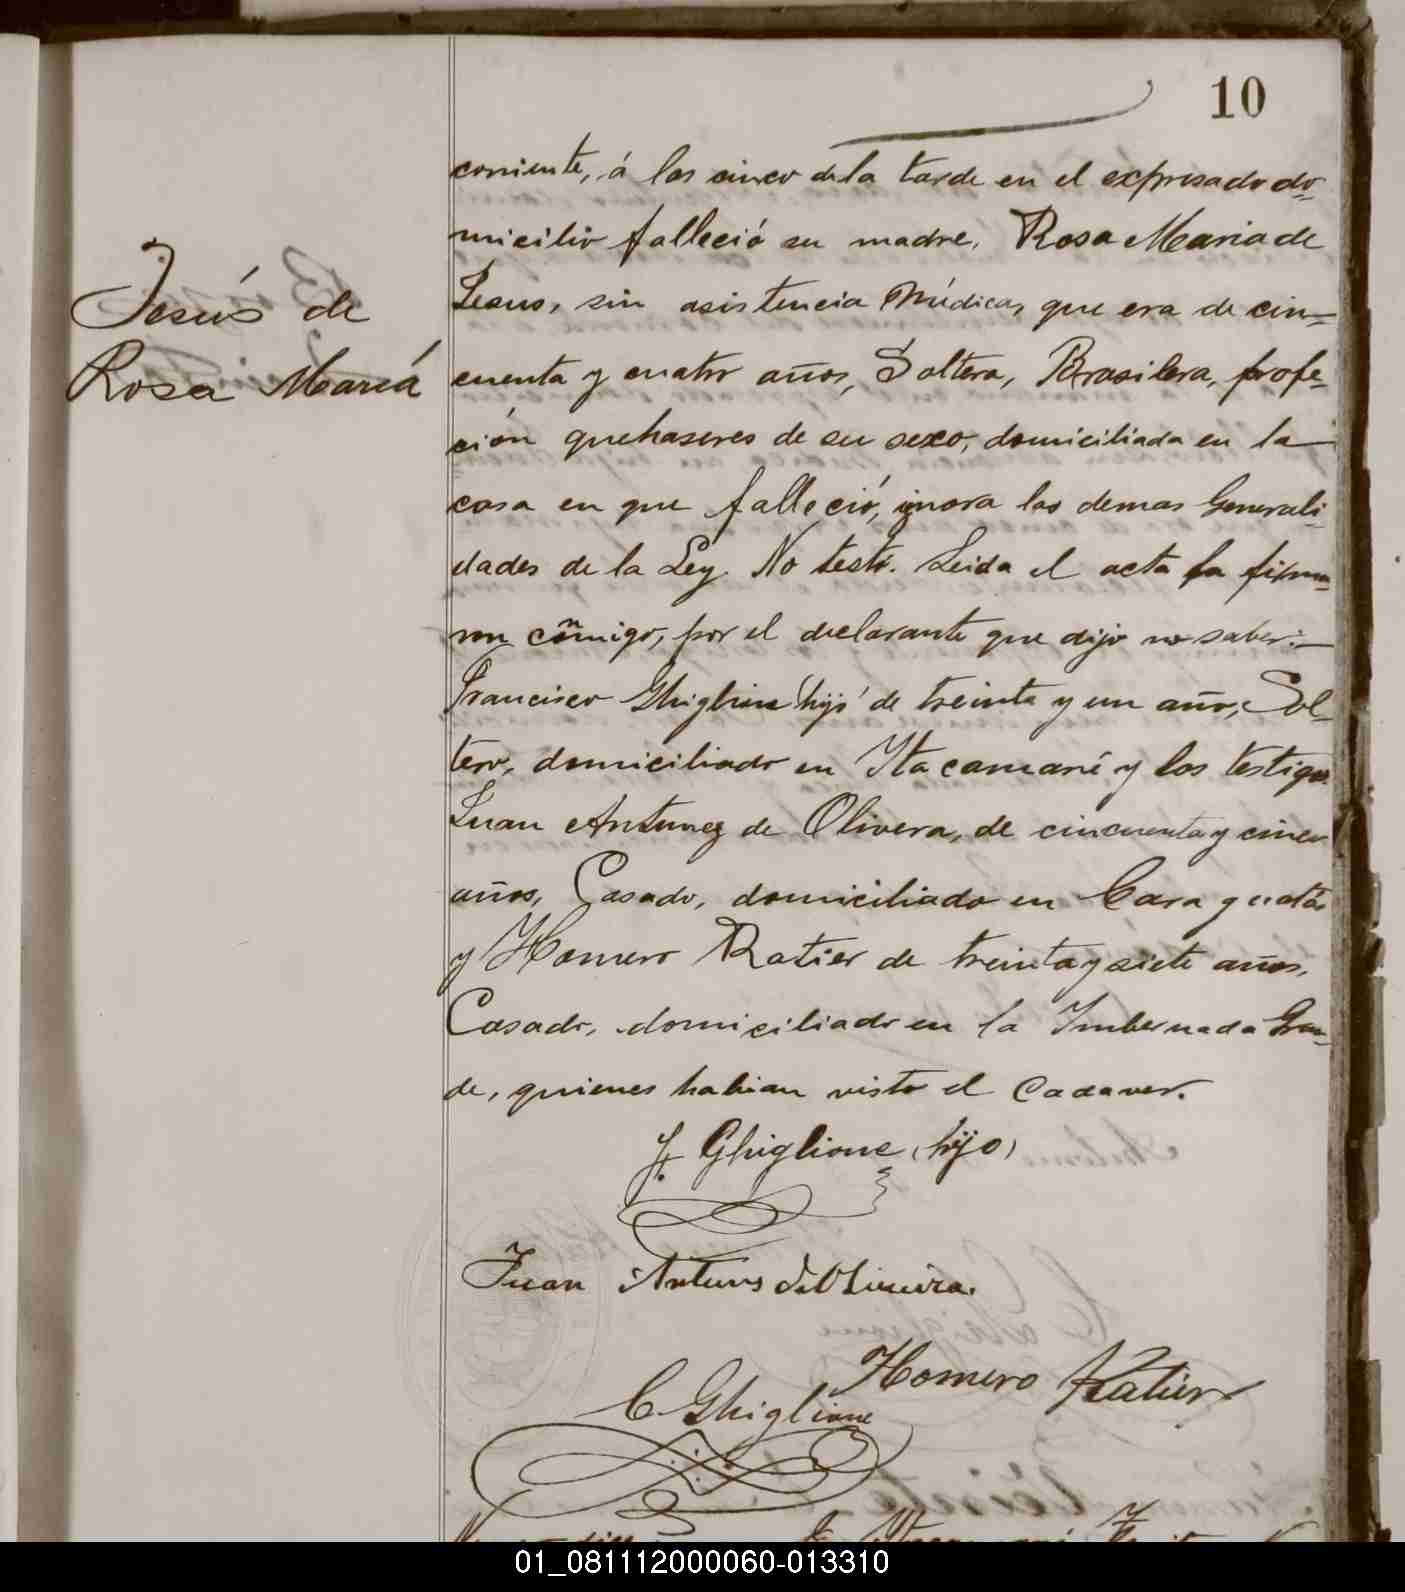 10
corriente, á las cinco de la tarde en el expresado do-
micilio falleció su madre, Rosa Maria de
Jesus, sin asistencia Médica, que era de cin-
cuenta y cuatro años, Soltera, Brasilera, profe-
ción quehaseres de su sexo, domiciliada en la
casa en que falleció, ignora las demas Generali-
dades de la Ley. No testó. Leida el acta la firma-
ron conmigo, por el declarante que dijo no saber:-
Francisco Ghiglione (hijo) de treinta y un año, Sol-
tero, domiciliado en Itacamaré y los testigos
Juan Antunez de Olivera, de cincuenta y cinco
años, Casado, domiciliado en Caraguatá
y Homero Ratier de treinta y siete años,
Casado, domiciliado en la Imbernada Gran-
de, quienes habian visto el Cadaver.
Jesús de
Rosa María
F. Ghiglione (hijo)
Juan Antuns d'Oliveira.
Homero Ratier
C. Ghiglione
01_081112000060-013310